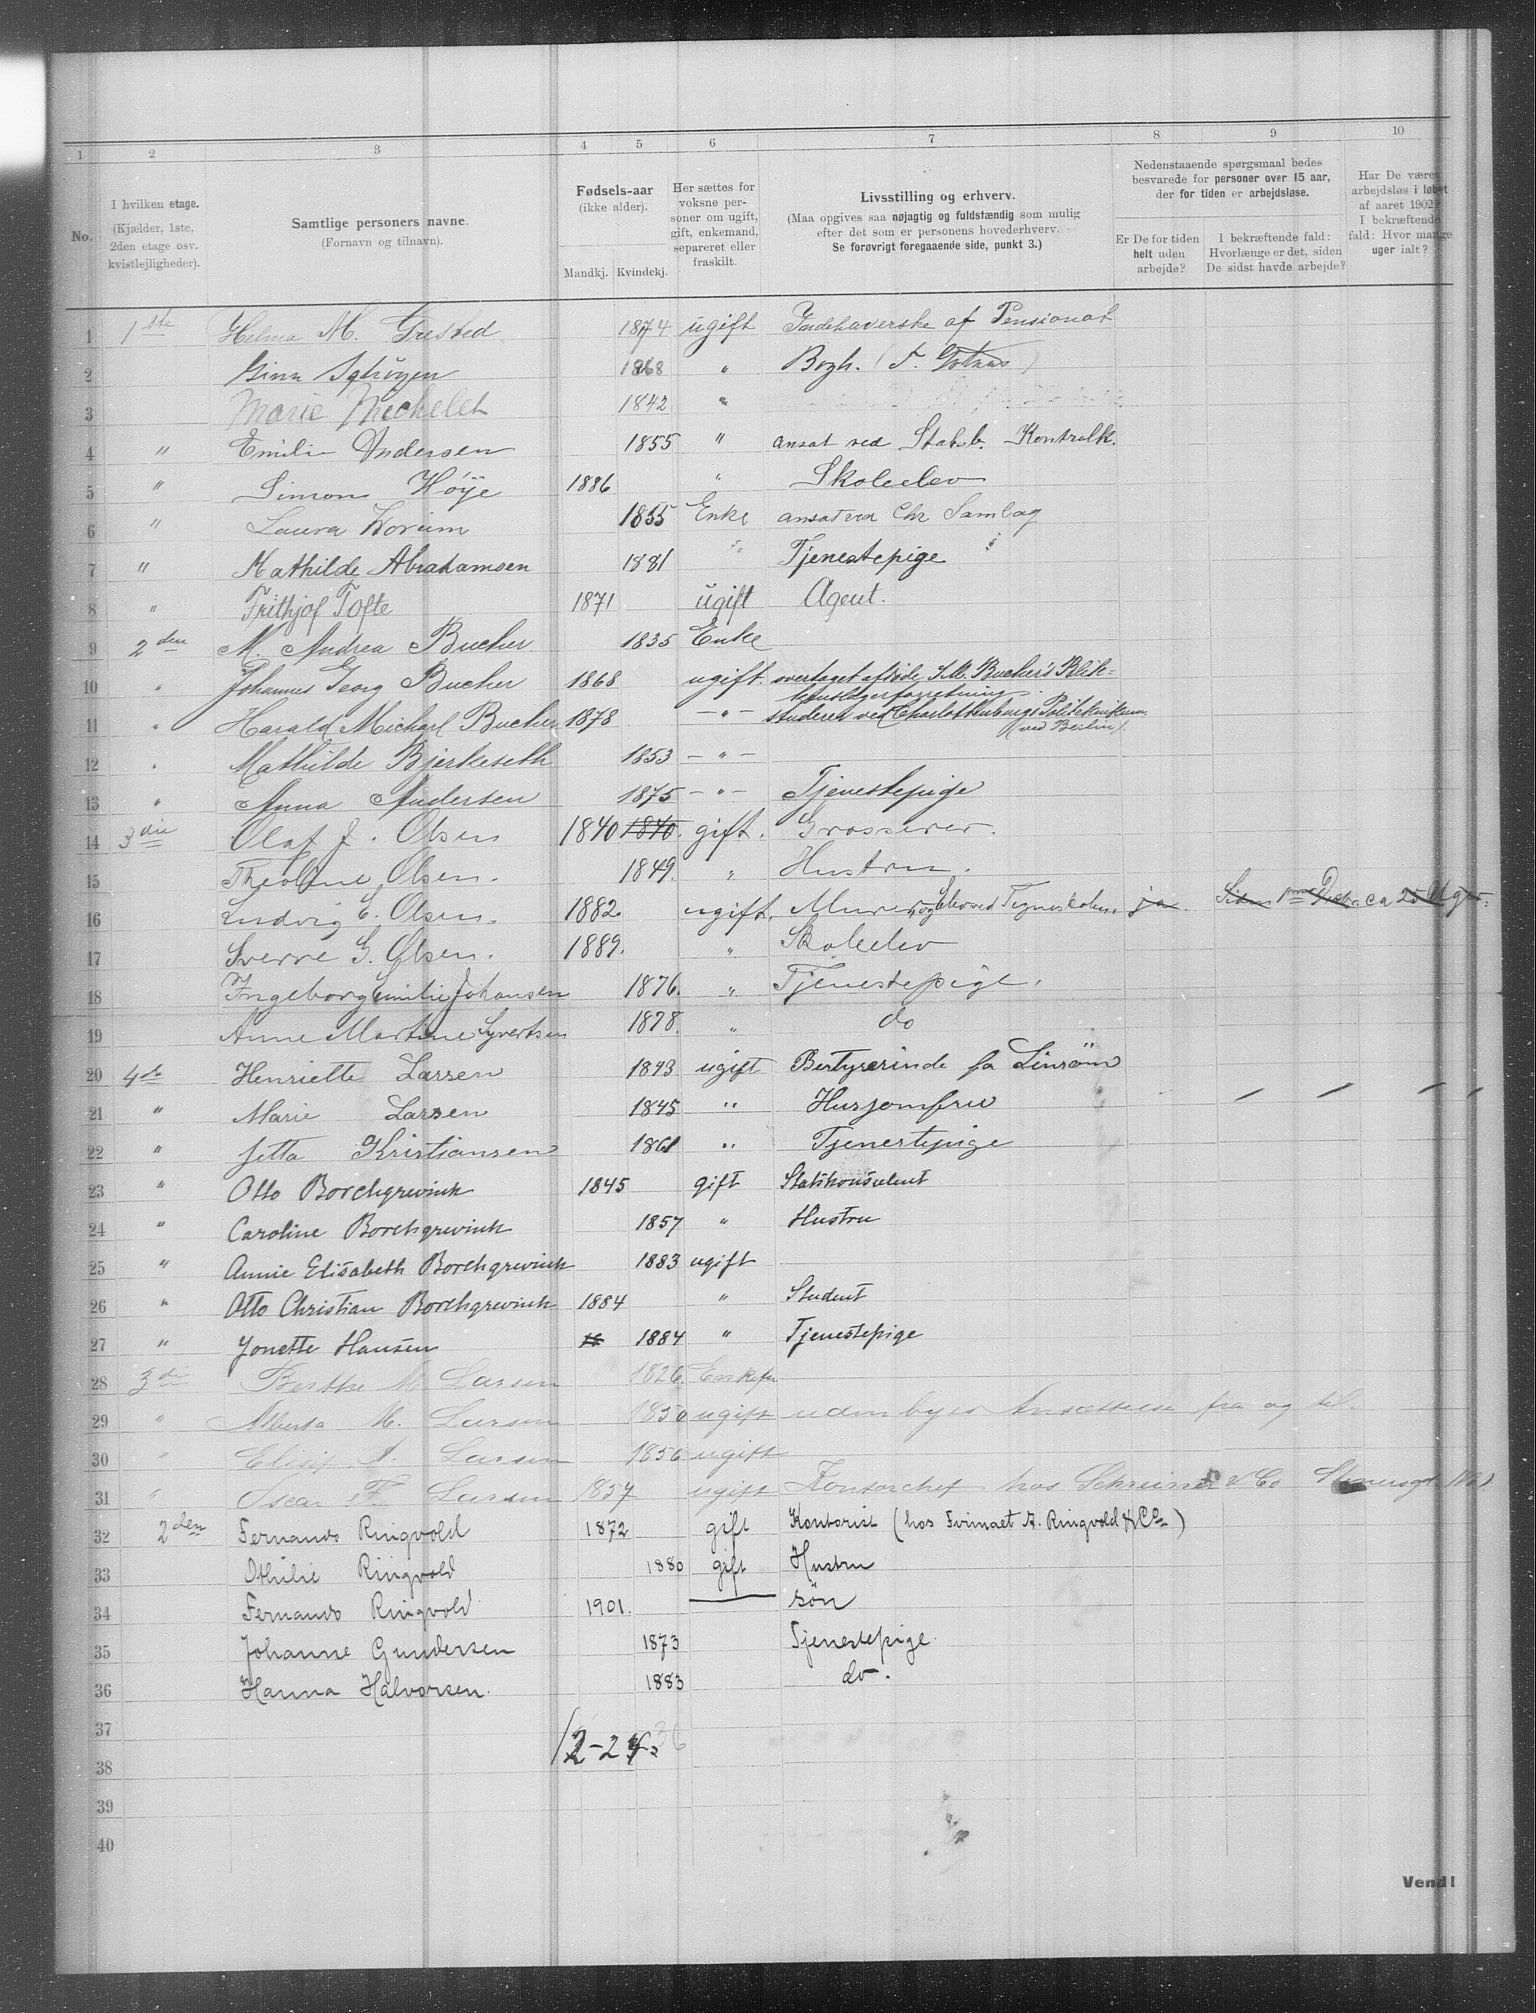 1 2 3 4 5 6 7 8 9 10
No.
I hvilken etage.
(Kjælder, 1ste,
2den etage osv.
kvistlejligheder).
Samtlige personers navne.
(Fornavn og tilnavn).
Fødsels-aar
(ikke alder).
Mandkj. Kvindekj.
Her sættes for
voksne per-
soner om ugift,
gift, enkemand,
separeret eller
fraskilt.
Livsstilling og erhverv.
(Maa opgives saa nøjagtig og fuldstændig som mulig
efter det som er personens hovederhverv.
Se forøvrigt foregaaende side, punkt 3.)
Nedenstaaende spørgsmaal bedes
besvarede for personer over 15 aar,
der for tiden er arbejdsløse.
Er De for tiden
helt uden
arbejde?
I bekræftende fald:
Hvorlænge er det, siden
De sidst havde arbejde?
Har De været
arbejdsløs i løbet
af aaret 1902?
I bekræftende
fald: Hvor mange
uger ialt?
1 1ste Helma M. Grested 1874 ugift Indehaverske af Pensionat
2 Gina 1868 " Bogh. (T.
3 Marie Michelet 1842 "
4 " Emilie Andersen 1855 " ansat ved Kontrolk.
5 " Simon Høÿe 1886 " Skoleelev
6 " Laura Worum 1855 Enke ansat ved Chr Samlag
7 " Mathilde Abrahamsen 1881 " Tjenestepige
8 " Frithjof Tofte 1871 ugift Agent.
9 2den M. Andrea Bucher 1835 Enke
10 " Johannes Georg Bucher 1868 ugift. overtaget afdøde J. M. Bucher's Blik-
kenslagerforretning
11 " Harald Michael Bucher 1878 — " — studerer ved Charlottenburgs Politeknikum
(ved Berlin)
12 " Mathilde Bjerkeseth 1853 — " —
13 " Anna Andersen 1875 — " — Tjenestepige
14 3die Olaf J. Olsen 1840 1840. gift. Grosserer.
15 Theoline Olsen. 1849. " Hustru.
16 Ludvig E. Olsen. 1882 ugift. Murer, og Elev ved Tegneskolen. ja. Siden ca 25 Uger.
17 Sverre G. Olsen. 1889. " Skoleelev
18 Ingeborg Emilie Johansen 1876. " Tjenestepige.
19 Anne Martine Syvertsen 1878. " do
20 4de Henriette Larsen 1843 ugift Bestyrerinde fa Linröm
21 " Marie Larsen 1845 " Husjomfru
22 " Jetta Kristiansen 1861 " Tjenestepige
23 " Otto Borchgrevink 1845 gift Statskonsulent
24 " Caroline Borchgrevink 1857 " Hustru
25 " Annie Elisabeth Borchgrevink 1883 ugift
26 " Otto Christian Borchgrevink 1884 " Student
27 " Jonette Hansen 18 1884 " Tjenestepige
28 3di Berthe M. Larsen 1826. Enkefru
29 " Alberta M. Larsen 1850 ugift udenbyes Ansættelse fra og til.
30 " A. Larsen 1856 ugift
31 " Oscar F. Larsen 1857 ugift Kontorchef hos Schreiner & Co
32 2den Fernando Ringvold 1872 gift Kontorist (hos Firmaet A. Ringvold & Co)
33 Othilie Ringvold 1880 gift Hustru
34 Fernando Ringvold 1901. — søn
35 Johanne Gundersen 1873 Tjenestepige
36 Hanna Halvorsen. 1883 do.
37
12-24 36
38
39
40
Vend!